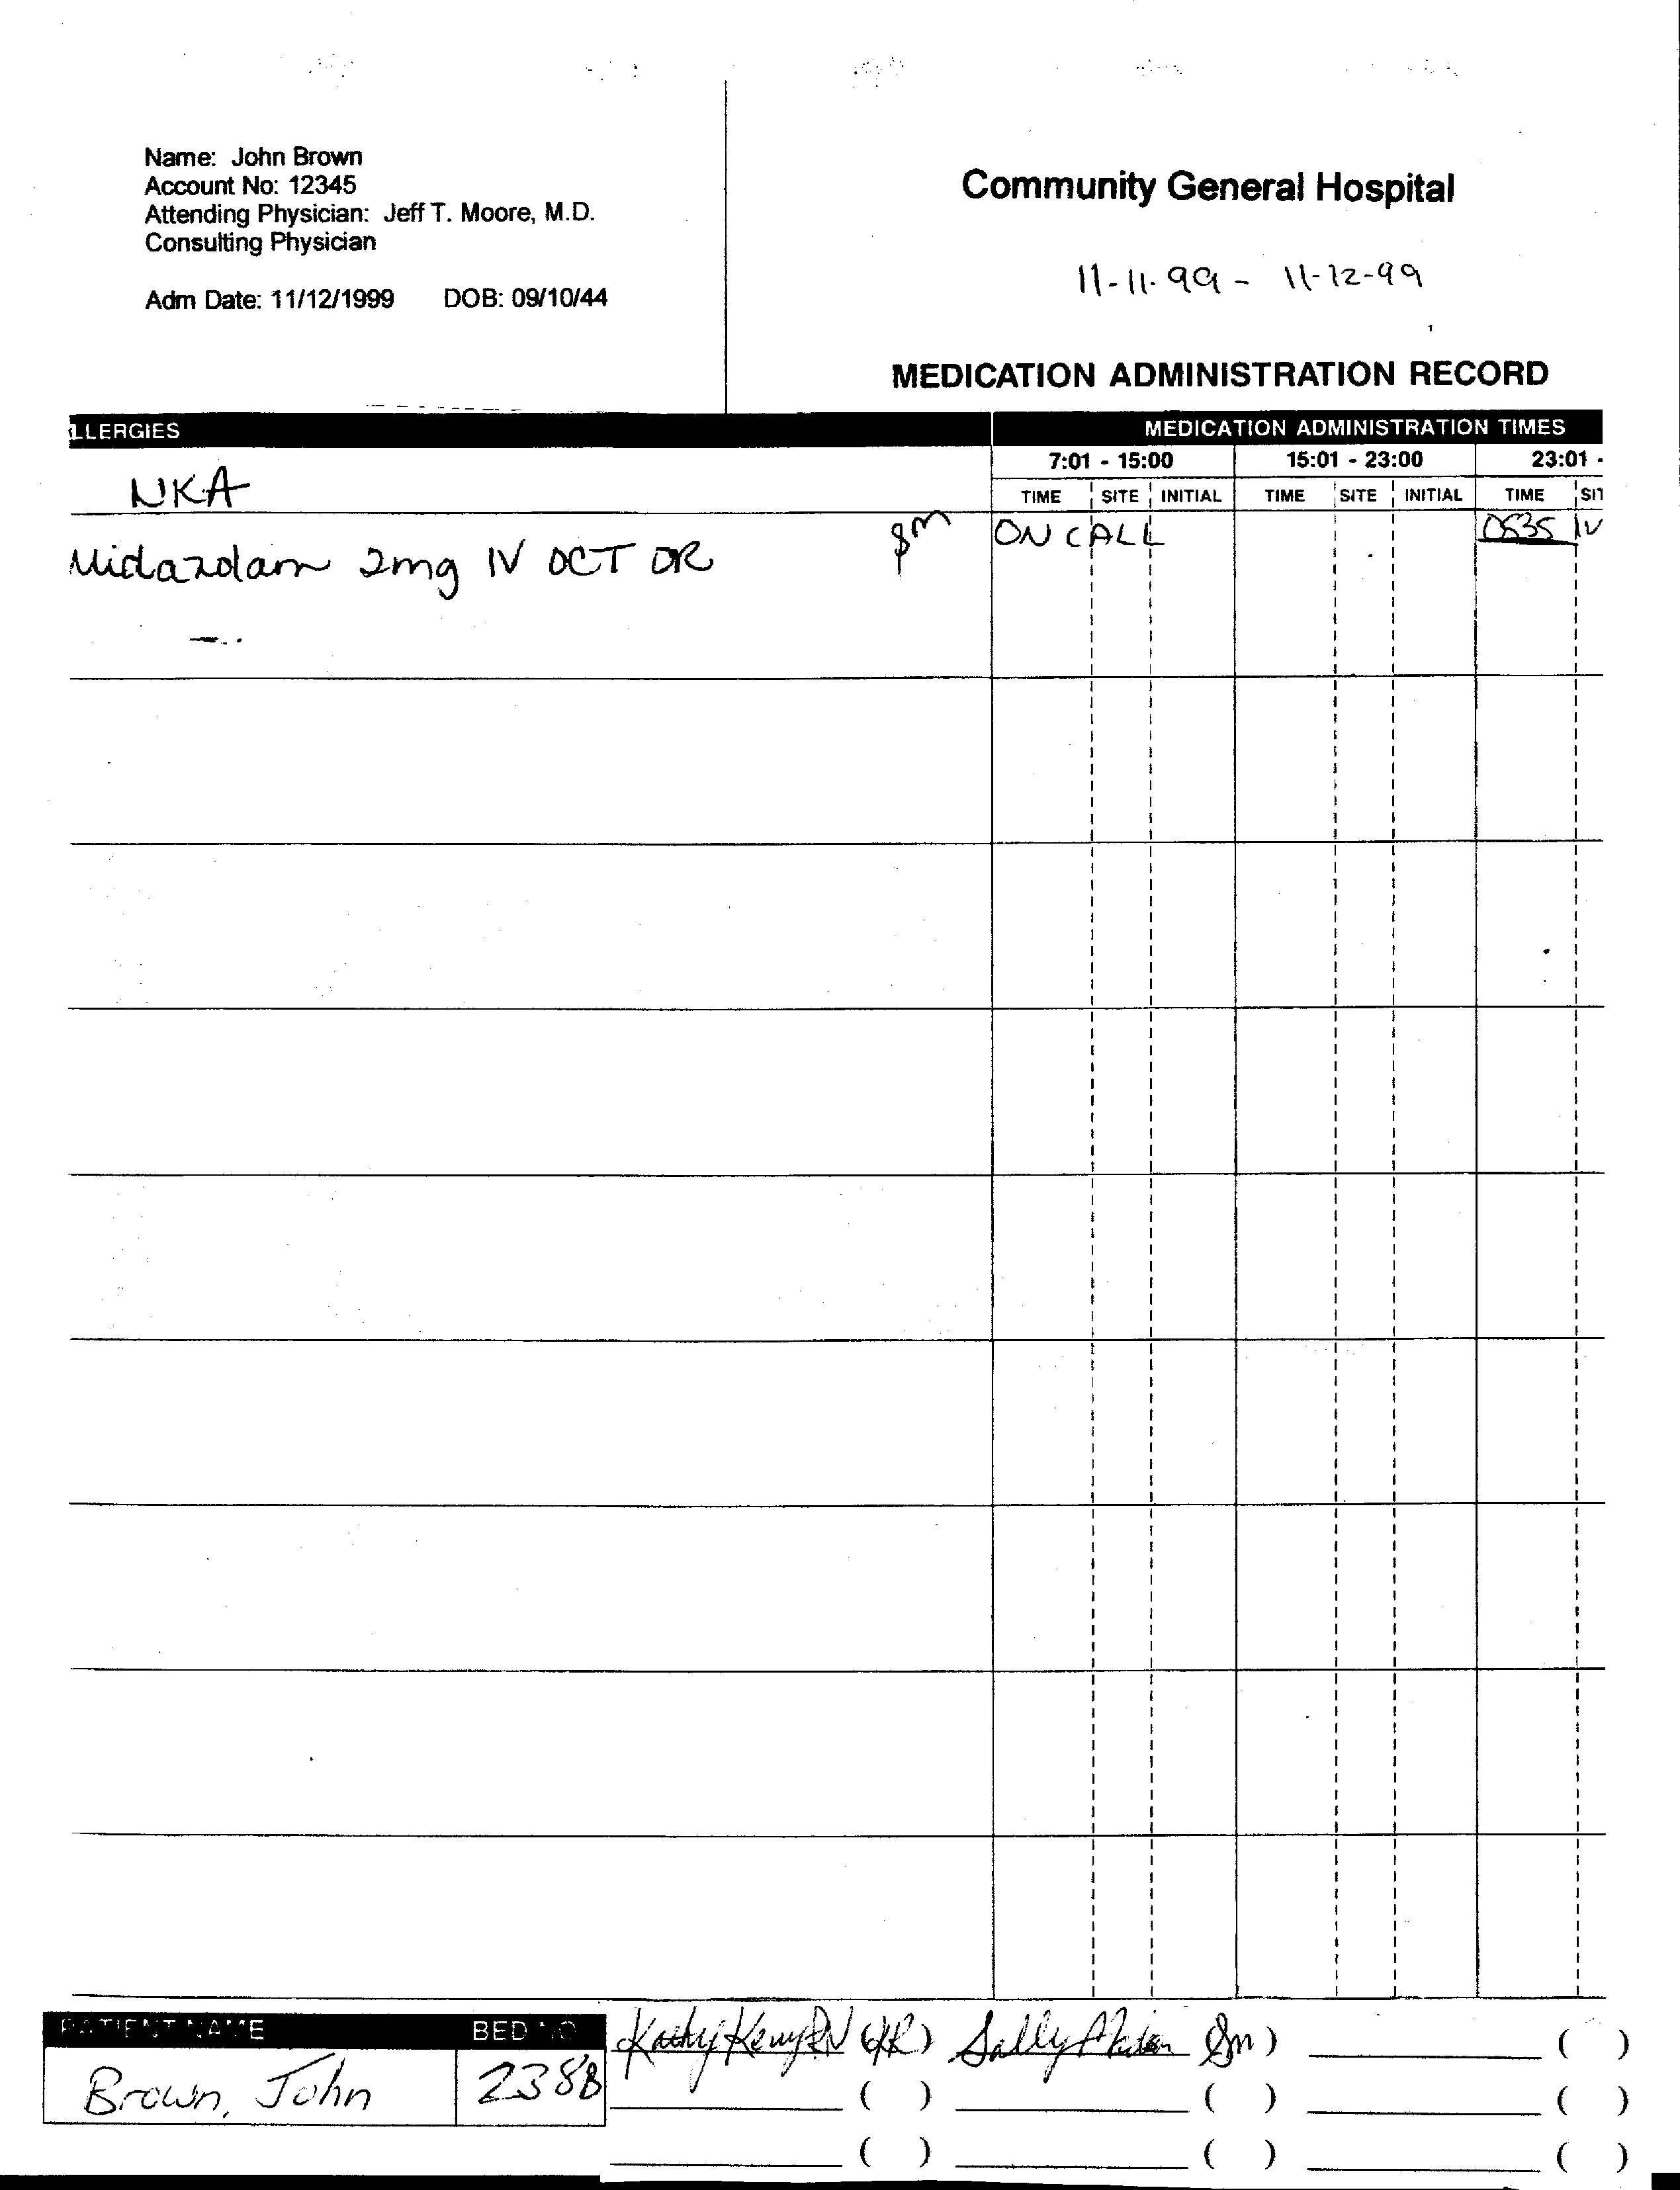 Name: John Brown
Account No: 12345
Attending Physician: Jeff T. Moore, M.D.
Consulting Physician
Adm Date: 11/12/1999 DOB: 09/10/44
Community General Hospital
11-11-99 - 11-12-99
MEDICATION ADMINISTRATION RECORD
LLERGIES
MEDICATION ADMINISTRATION TIMES
7:01 - 15:00 15:01 - 23:00 23:01 -
NKA
TIME SITE INITIAL TIME SITE INITIAL TIME SIT
Midazolam 2mg IV OCT OR SM ON CALL 0535 IV
PATIENT NAME BED NO
Brown, John 238B
Kathy RN ( ) Sally (SM)
( ) ( ) ( )
( ) ( ) ( )